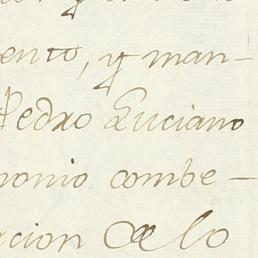 ento, y man-
Pedro Luciano
monio combe-
acion de lo